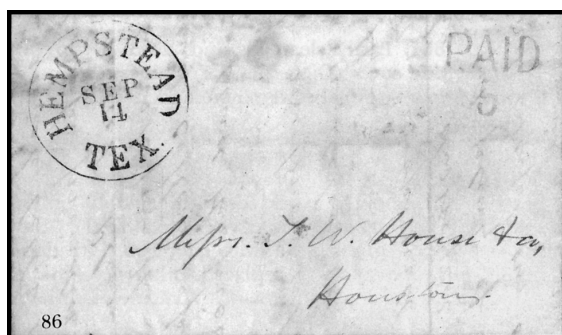 HEMPSTEAD
SEP
14
TEX.
PAID
5
Messrs. T. W. House & Co,
Houston.
86